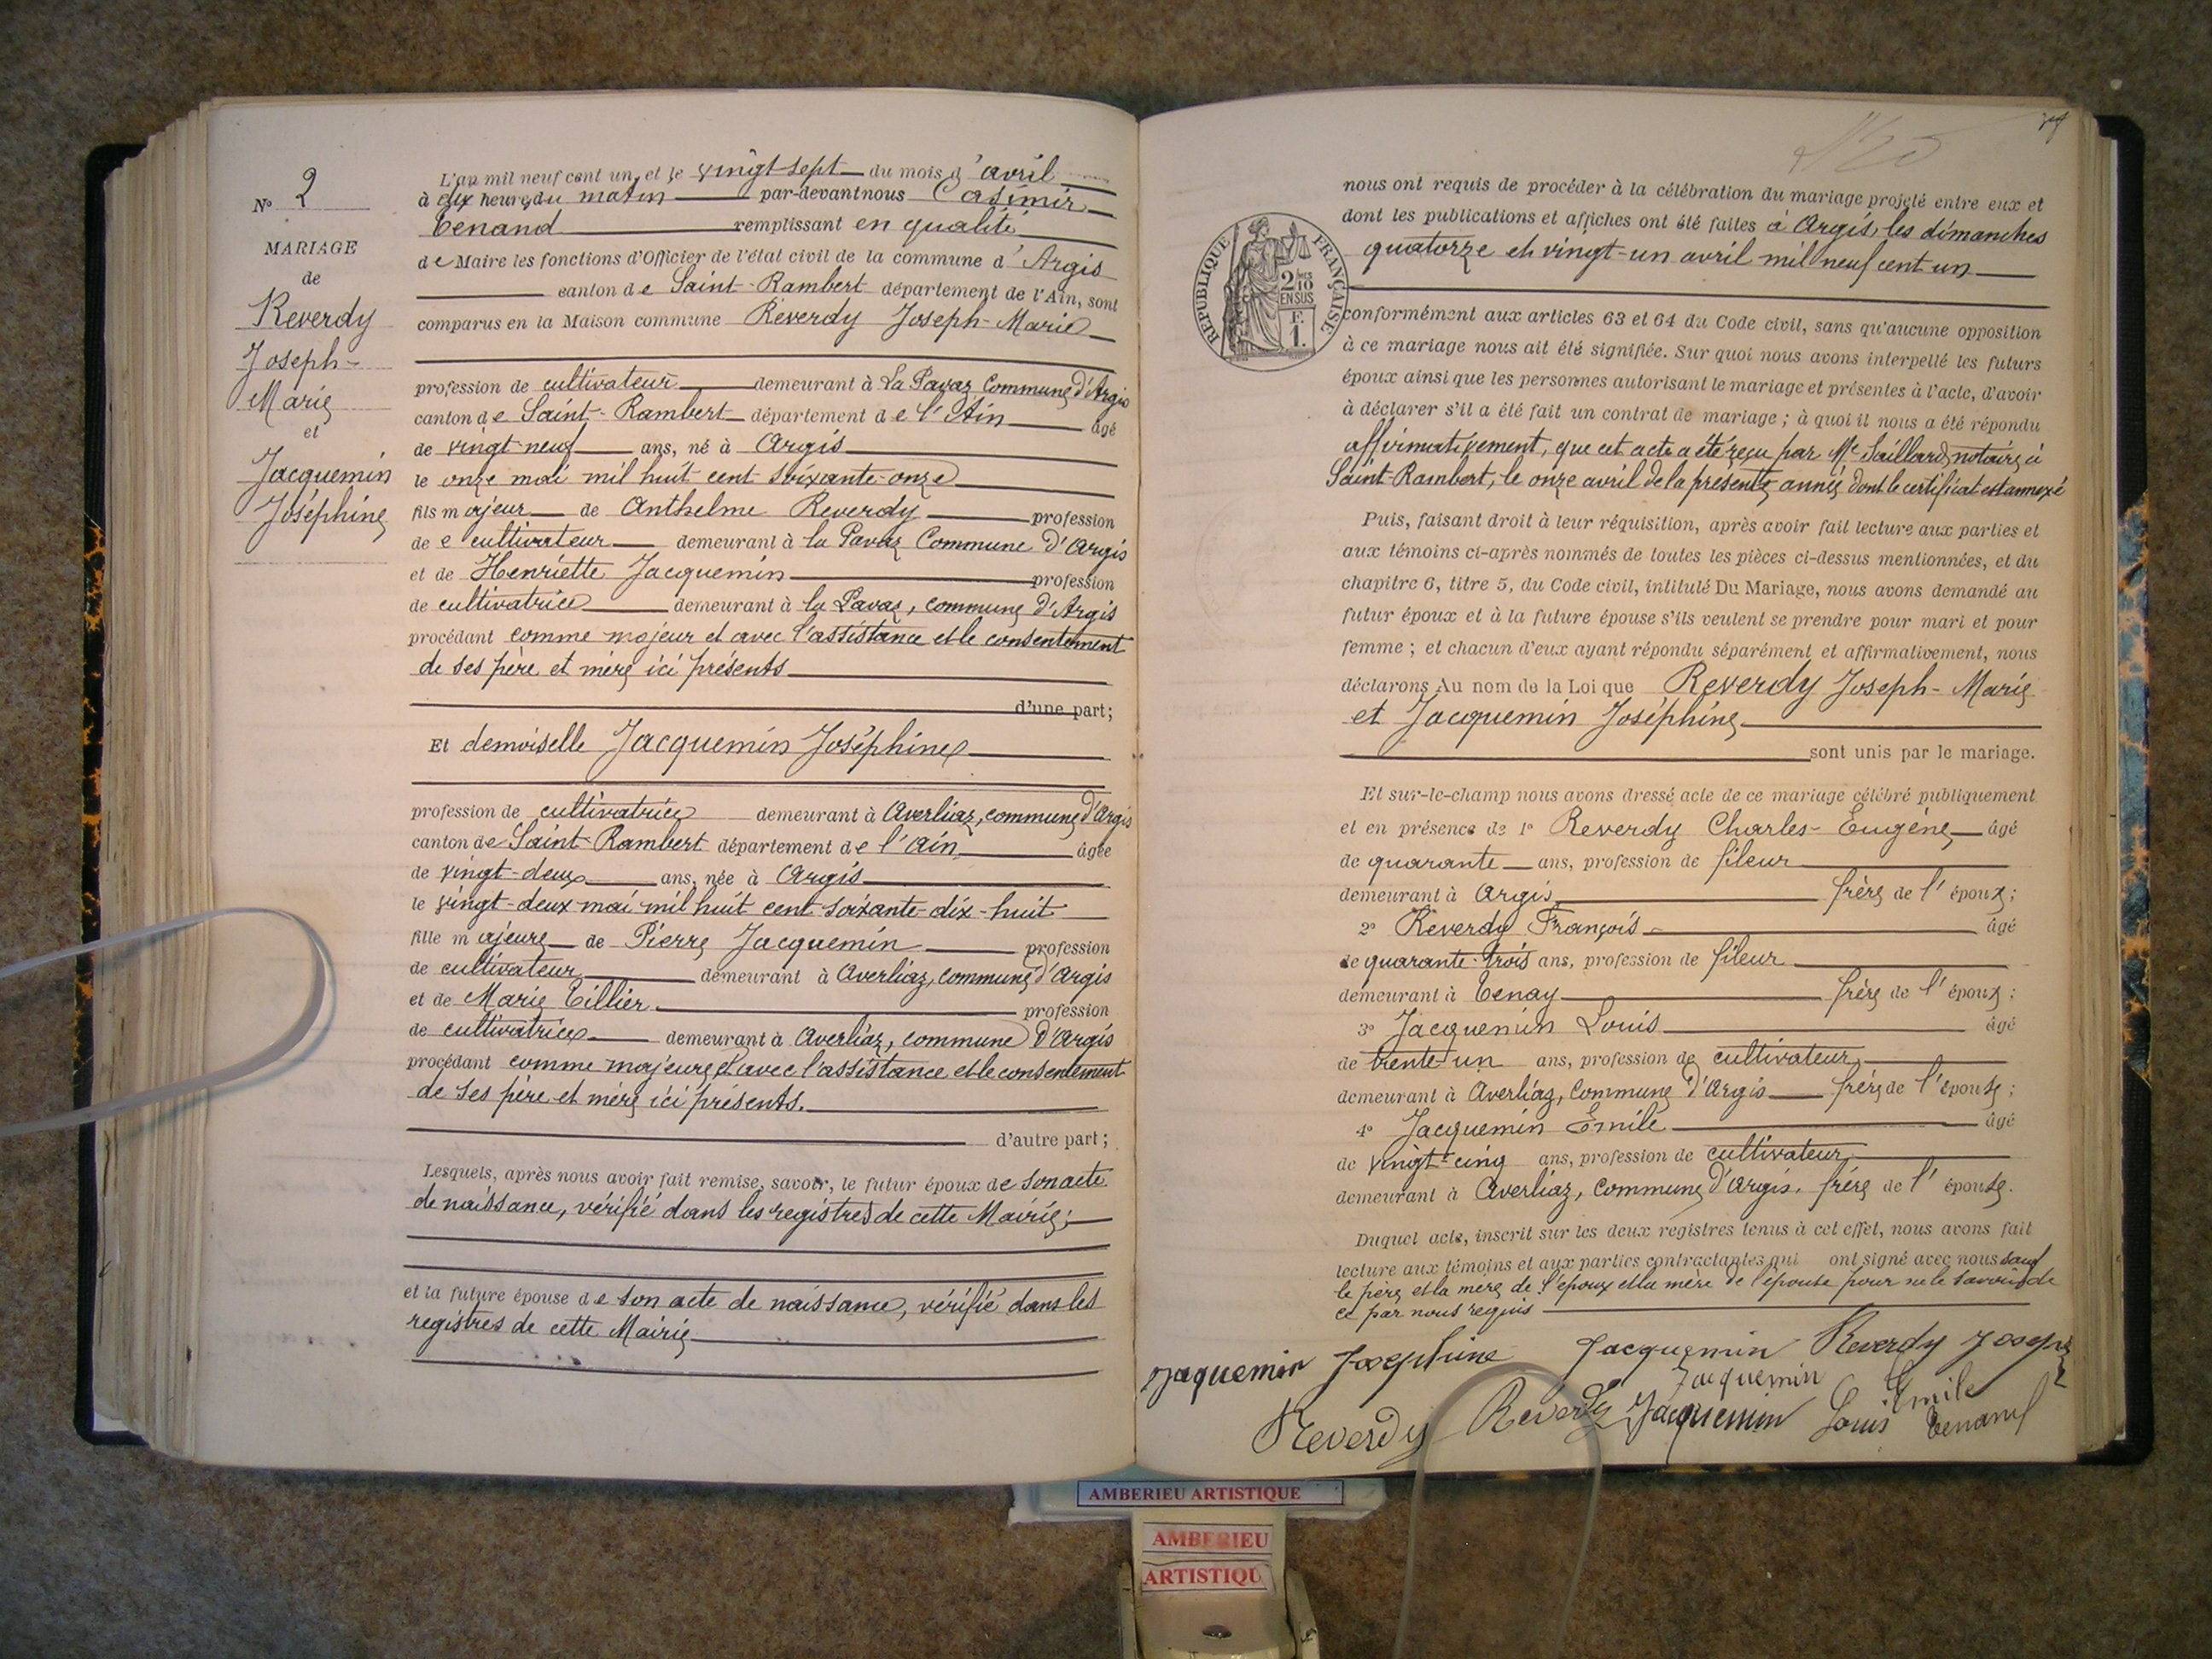 N° 2
MARIAGE
de
Reverdy
Joseph-
Marie
et
Jacquemin
Joséphine
L'an mil neuf cent un, et le vingt-sept du mois d'avril
à dix heures du matin par-devant nous Casimir
Tenand remplissant en qualité
de Maire les fonctions d'Officier de l'état civil de la commune d'Argis
canton de Saint-Rambert département de l'Ain, sont
comparus en la Maison commune Reverdy Joseph-Marie
profession de cultivateur demeurant à La Pavaz Commune d'Argis
canton de Saint-Rambert département de l'Ain âgé
de vingt-neuf ans, né à Argis
le onze mai mil huit cent soixante-onze
fils majeur de Anthelme Reverdy profession
de cultivateur demeurant à la Pavaz Commune d'Argis
et de Henriette Jacquemin profession
de cultivatrice demeurant à la Pavaz, commune d'Argis
procédant comme majeur et avec l'assistance et le consentement
de ses père et mère ici présents
d'une part;
Et demoiselle Jacquemin Joséphine
profession de cultivatrice demeurant à Averliaz, commune d'Argis
canton de Saint-Rambert département de l'Ain âgée
de vingt-deux ans, née à Argis
le vingt-deux mai mil huit cent soixante-dix-huit
fille majeure de Pierre Jacquemin profession
de cultivateur demeurant à Averliaz, commune d'Argis
et de Marie Tillier profession
de cultivatrice demeurant à Averliaz, commune d'Argis
procédant comme majeure et avec l'assistance et le consentement
de ses père et mère ici présents.
d'autre part;
Lesquels, après nous avoir fait remise, savoir, le futur époux de son acte
de naissance, vérifié dans les registres de cette Mairie;
et la future épouse de son acte de naissance, vérifié dans les
registres de cette Mairie
RÉPUBLIQUE FRANÇAISE
2/10
EN SUS
F.
1.
nous ont requis de procéder à la célébration du mariage projeté entre eux et
dont les publications et affiches ont été faites à Argis, les dimanches
quatorze et vingt-un avril mil neuf cent un
conformément aux articles 63 et 64 du Code civil, sans qu'aucune opposition
à ce mariage nous ait été signifiée. Sur quoi nous avons interpellé les futurs
époux ainsi que les personnes autorisant le mariage et présentes à l'acte, d'avoir
à déclarer s'il a été fait un contrat de mariage; à quoi il nous a été répondu
affirmativement, que cet acte a été reçu par Me Saillard, notaire à
Saint-Rambert, le onze avril de la présente année dont le certificat est annexé
Puis, faisant droit à leur réquisition, après avoir fait lecture aux parties et
aux témoins ci-après nommés de toutes les pièces ci-dessus mentionnées, et du
chapitre 6, titre 5, du Code civil, intitulé Du Mariage, nous avons demandé au
futur époux et à la future épouse s'ils veulent se prendre pour mari et pour
femme; et chacun d'eux ayant répondu séparément et affirmativement, nous
déclarons Au nom de la Loi que Reverdy Joseph-Marie
et Jacquemin Joséphine
sont unis par le mariage.
Et sur-le-champ nous avons dressé acte de ce mariage célébré publiquement
et en présence de 1° Reverdy Charles-Eugène âgé
de quarante ans, profession de fileur
demeurant à Argis frère de l'époux;
2° Reverdy François âgé
de quarante-trois ans, profession de fileur
demeurant à Tenay frère de l'époux;
3° Jacquemin Louis âgé
de trente-un ans, profession de cultivateur
demeurant à Averliaz, Commune d'Argis frère de l'épouse;
4° Jacquemin Emile âgé
de vingt-cinq ans, profession de cultivateur
demeurant à Averliaz, Commune d'Argis, frère de l'épouse.
Duquel acte, inscrit sur les deux registres tenus à cet effet, nous avons fait
lecture aux témoins et aux parties contractantes qui ont signé avec nous sauf
le père et la mère de l'époux et la mère de l'épouse pour ne le savoir de
ce par nous requis
Jaquemin Josephine Jacquemin Reverdy Joseph
Jacquemin Emile
Reverdy Reverdy Jacquemin Louis Tenand
AMBERIEU ARTISTIQUE
AMBERIEU
ARTISTIQU